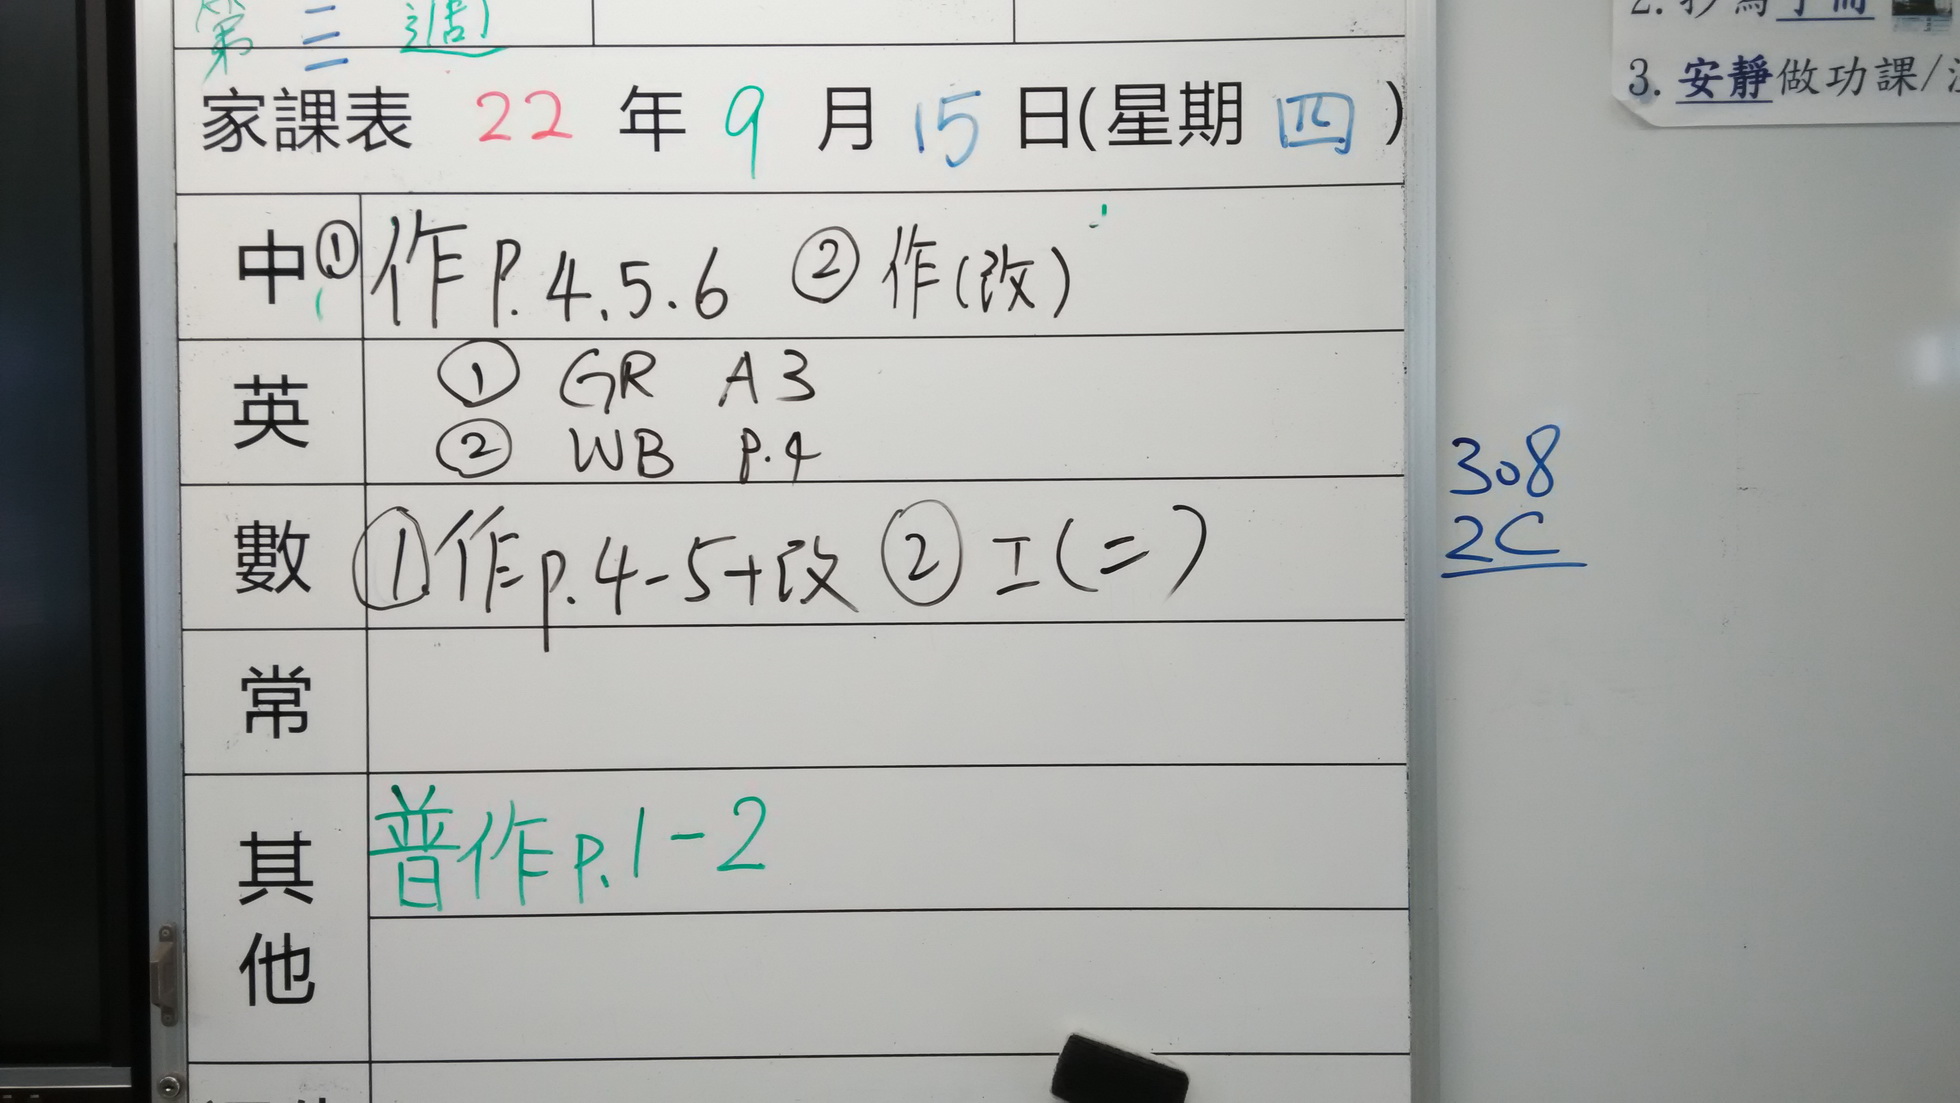 第 三 週
家課表 22 年 9 月 15 日(星期 四)
中 ① 作 P. 4. 5. 6 ② 作(改)
英 ① GR A3
② WB P.4
數 ① 作 p. 4-5+改 ② 工(二)
常
其他 普作 p. 1-2
3. 安靜做功課/
308
2C